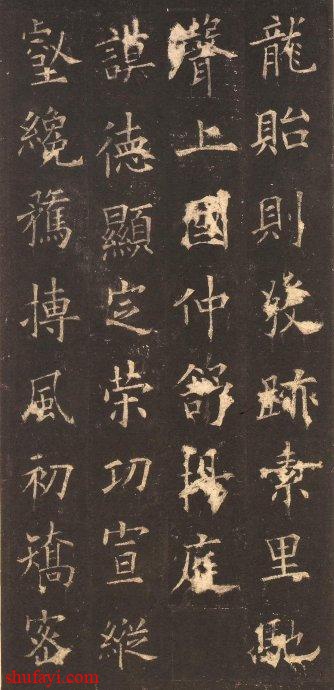 龍貽則發跡素里馳
聲上國仲庭
謨德顯定榮功宣縱
壑纔騖搏風初矯密
shufayi.com